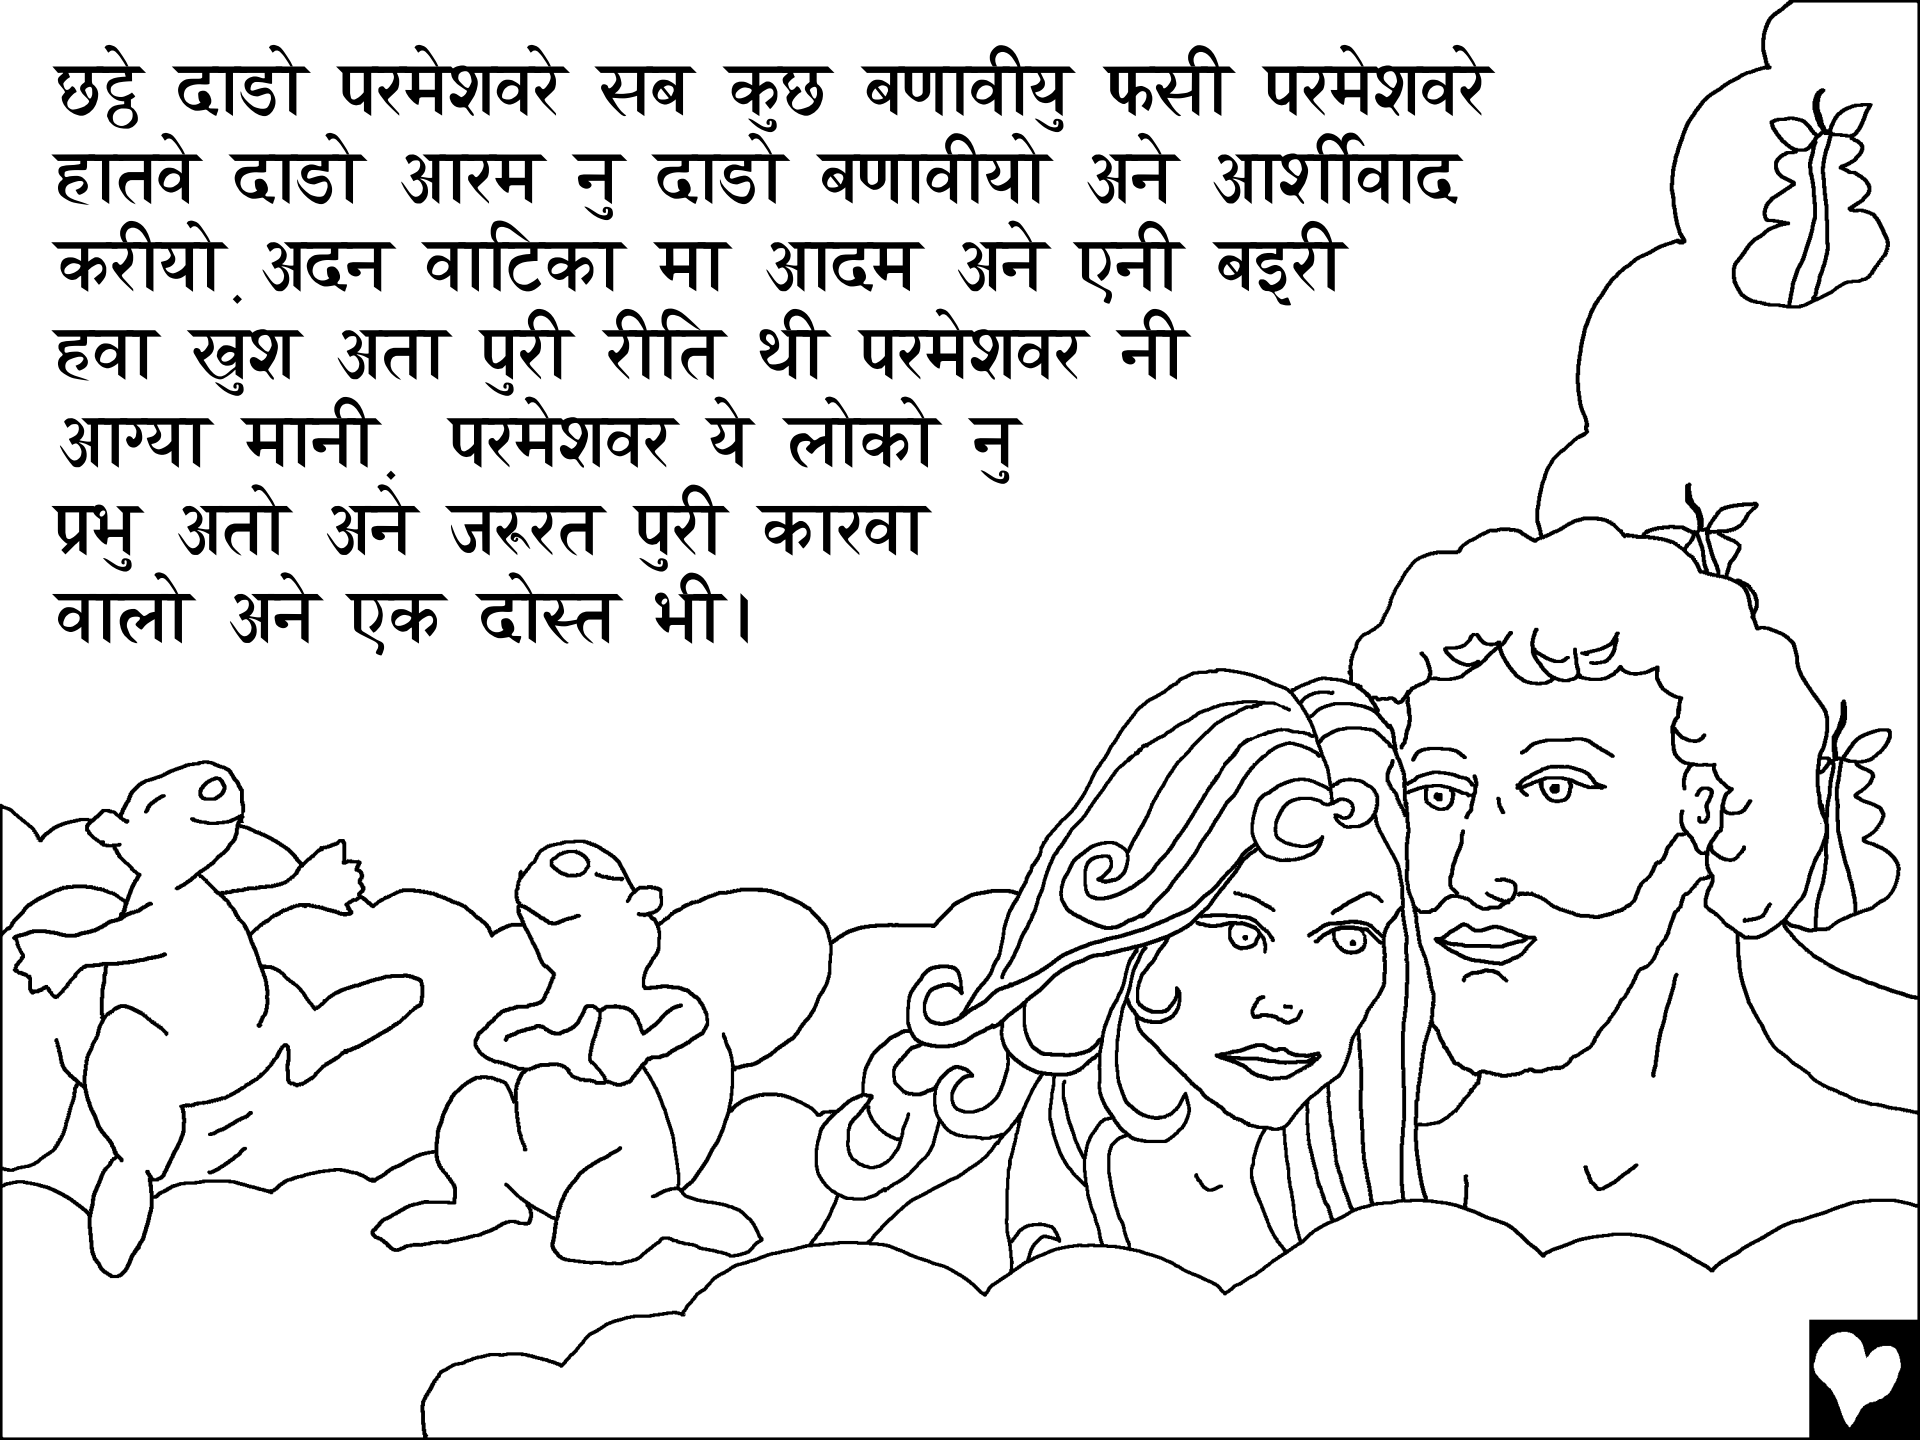 छट्ठे दाडो परमेशवरे सब कुछ बणावीयु फसी परमेशवरे
हातवे दाडो आरम नु दाडो बणावीयो अने आर्शीवाद
करीयो. अदन वाटिका मा आदम अने एनी बइरी
हवा खुश अता पुरी रीति थी परमेशवर नी
आग्या मानी. परमेशवर ये लोको नु
प्रभु अतो अने जरूरत पुरी कारवा
वालो अने एक दोस्त भी।